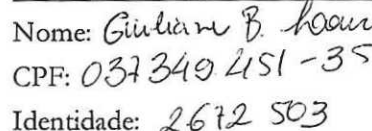 Nome: Giuliane B.
CPF: 037349451-35
Identidade: 2672503